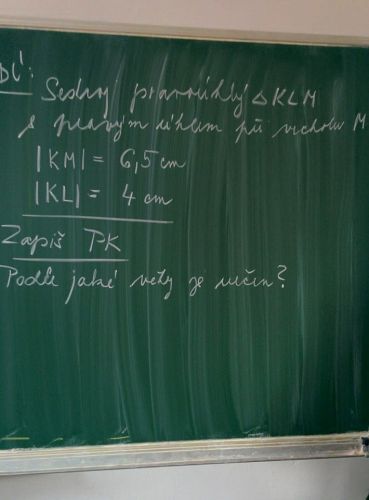 DÚ:
Sestroj pravoúhlý △KLM
s pravým úhlem při vrcholu M
|KM| = 6,5 cm
|KL| = 4 cm
Zapiš PK
Podle jaké věty je určen?